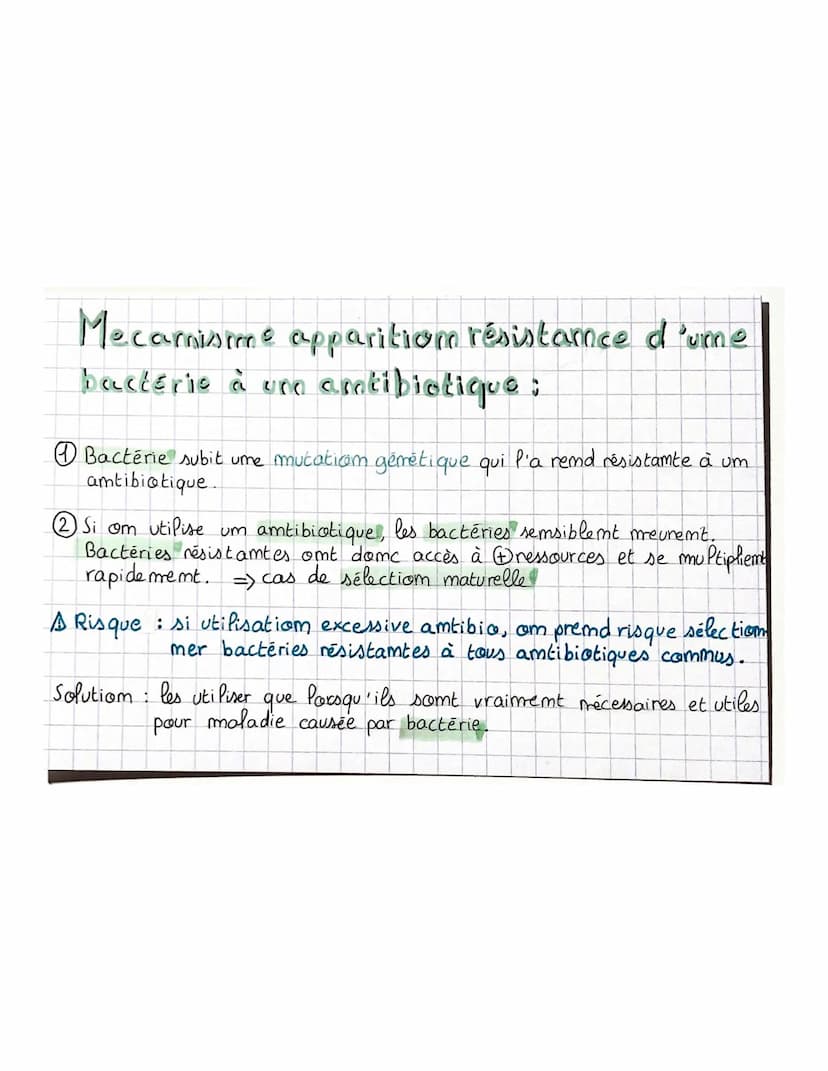 Mecanisme apparition résistance d'une
bactérie à un antibiotique :
① Bactérie subit une mutation génétique qui l'a rend résistante à un
antibiotique.
② Si on utilise un antibiotique, les bactéries sensiblent meurent.
Bactéries résistantes ont donc accès à ⊕ ressources et se multiplient
rapidement. => cas de sélection naturelle
⚠ Risque : si utilisation excessive antibio, on prend risque sélection
ner bactéries résistantes à tous antibiotiques connus.
Solution : les utiliser que lorsqu'ils sont vraiment nécessaires et utiles
pour maladie causée par bactérie.